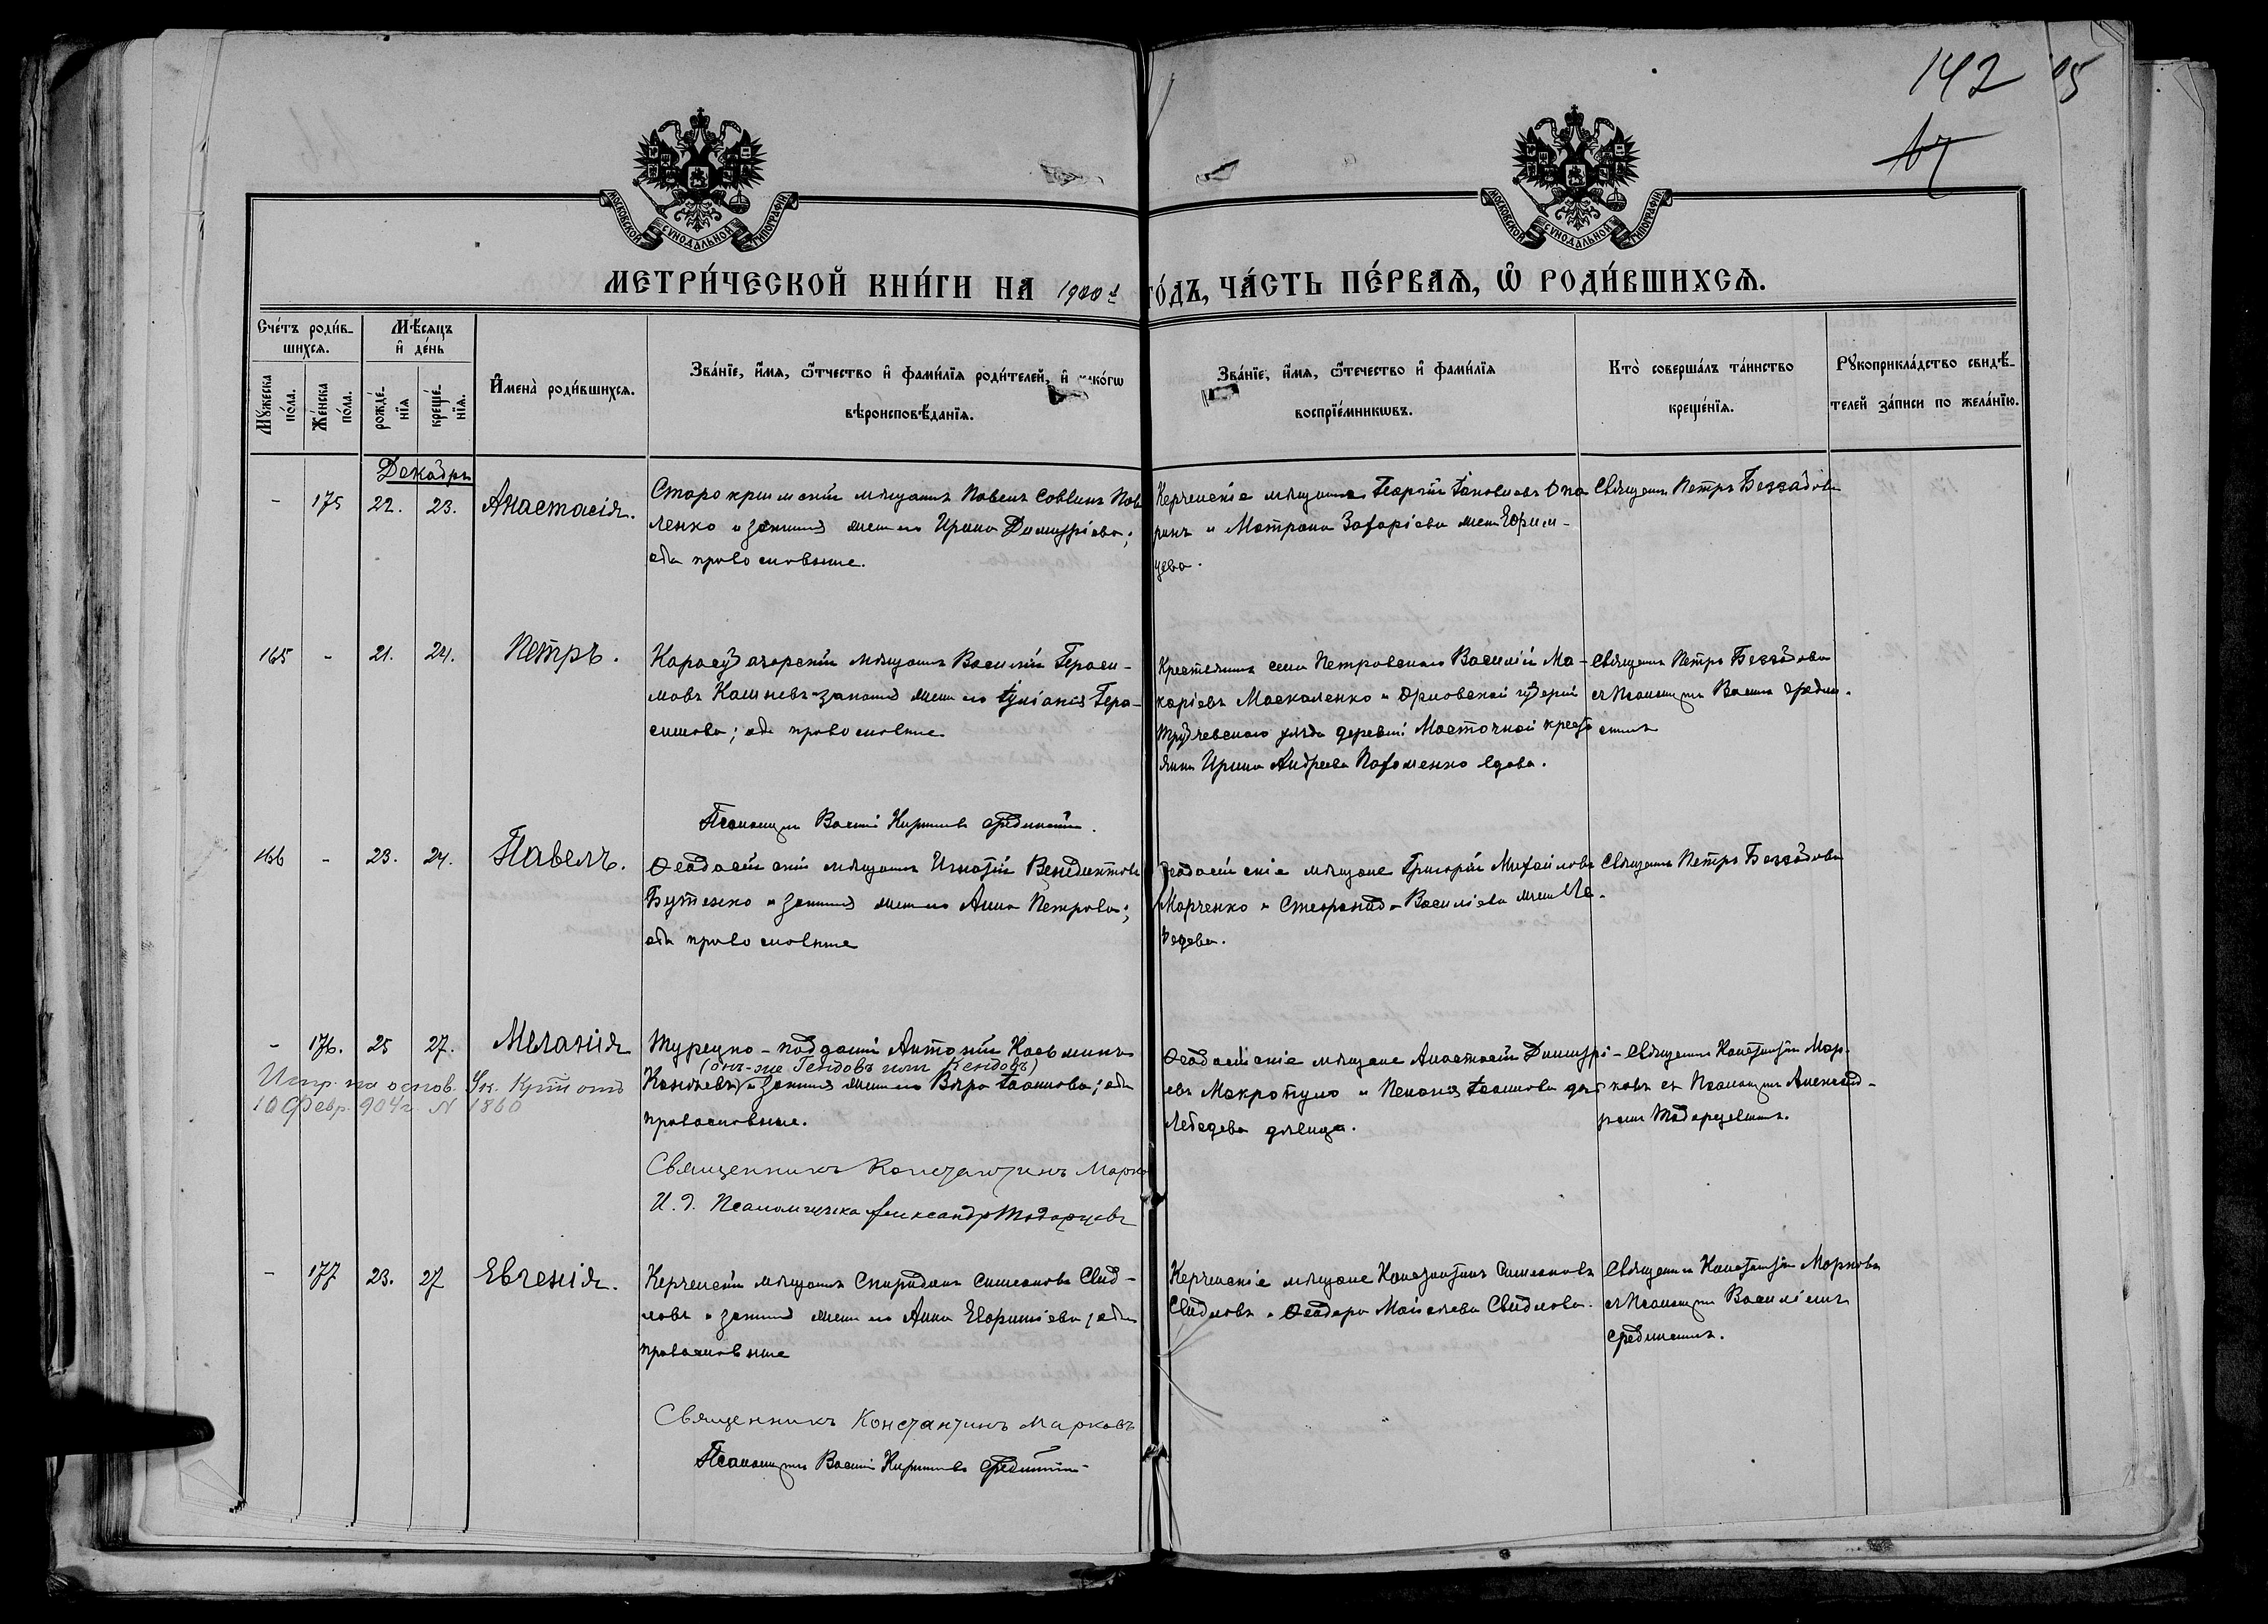 142
05
МОСКОВСКОЙ СѴНОДАЛЬНОЙ ТИПОГРАФІИ
МОСКОВСКОЙ СѴНОДАЛЬНОЙ ТИПОГРАФІИ
МЕТРИ́ЧЕСКОЙ КНИ́ГИ НА 1900й ГО́ДЪ, ЧА́СТЬ ПЕ́РВАѦ, Ѡ҆ РОДИ́ВШИХСѦ.
Сче́тъ роди́в-
шихсѧ.
Мѣ́сѧцъ
и҆ де́нь
Мꙋ́жеска по́ла.
Же́нска по́ла.
рожде́-нїѧ
креще́-нїѧ.
И҆мена̀ роди́вшихсѧ.
Зва́нїе, и҆́мѧ, ѻ҆́тчество и҆ фами́лїѧ роди́телей, и҆ како́гѡ
вѣроисповѣ́данїѧ.
Зва́нїе, и҆́мѧ, ѻ҆́течество и҆ фами́лїѧ
воспрїе́мникѡвъ.
Кто̀ соверша́лъ та́инство
креще́нїѧ.
Рꙋкоприкла́дство свидѣ́-
телей за́писи по жела́нїю.
Декабрь
- 175 22. 23. Анастасія.
Старокрымскій мѣщанинъ Павелъ Саввинъ Пав
ленко и законная жена его Ирина Димитріева;
оба православные.
Керченскіе мѣщане Георгій
ринъ и Матрона Захаріева жена Ефрем-
цева.
Священникъ Петръ Беззабова
165 - 21. 24. Петръ.
Карасубазарскій мѣщанинъ Василій Гераси-
мовъ Кашневъ законная жена его Іуліанія Гера-
симова; оба православные
Крестьянинъ села Петровскаго Василій Ма-
каріевъ Маскаленко и Орловской губерніи
Трубчевскаго уѣзда деревни Масточной крест
янка Ирина Андреева Пархоменко вдова.
Священникъ Петръ Беззабова
съ Псаломщикомъ Василіемъ Средин-
скимъ
Псаломщикъ Василій Кирилловъ Срединскій.
166 - 23. 24. Павелъ.
Ѳеодосійскій мѣщанинъ Игнатій Венедиктовъ
Бутенко и законная жена его Анна Петрова;
оба православные
Ѳеодосійскіе мѣщане Григорій Михайловъ
Марченко и Стефанида Василіева жена Ле-
бедева.
Священникъ Петръ Беззабова
- 176. 25 27. Меланія
Турецко-подданый Антоній Косьминъ
(онъ-же Гендовъ или Кендовъ)
Кондьевъ) и законная жена его Вѣра Іоаннова; оба
православные.
Испр. на основ. Ук. отъ
10 Февр. 904 г. N 1860
Ѳеодосійскіе мѣщане Анастасій Димитрі-
евъ Макропуло и Пелагія Іоаннова
Лебедева дѣвица.
Священникъ Константинъ Мар-
ковъ съ Псаломщикомъ Александ-
ромъ Тодорцевымъ.
Священникъ Константинъ Марко
И. д. Псаломщика Александръ Тодорцевъ
- 177 23. 27 Евгенія.
Керченскій мѣщанинъ Спиридонъ Симеоновъ Свид-
ловъ и законная жена его Анна Евфиміева; оба
православные
Керченскіе мѣщане Константинъ Симеоновъ
Свидловъ и Ѳеодора Моисеева Свидлова.
Священникъ Константинъ Марковъ
съ Псаломщикомъ Василіемъ
Срединскимъ.
Священникъ Константинъ Марковъ
Псаломщикъ Василій Кирилловъ Срединскій